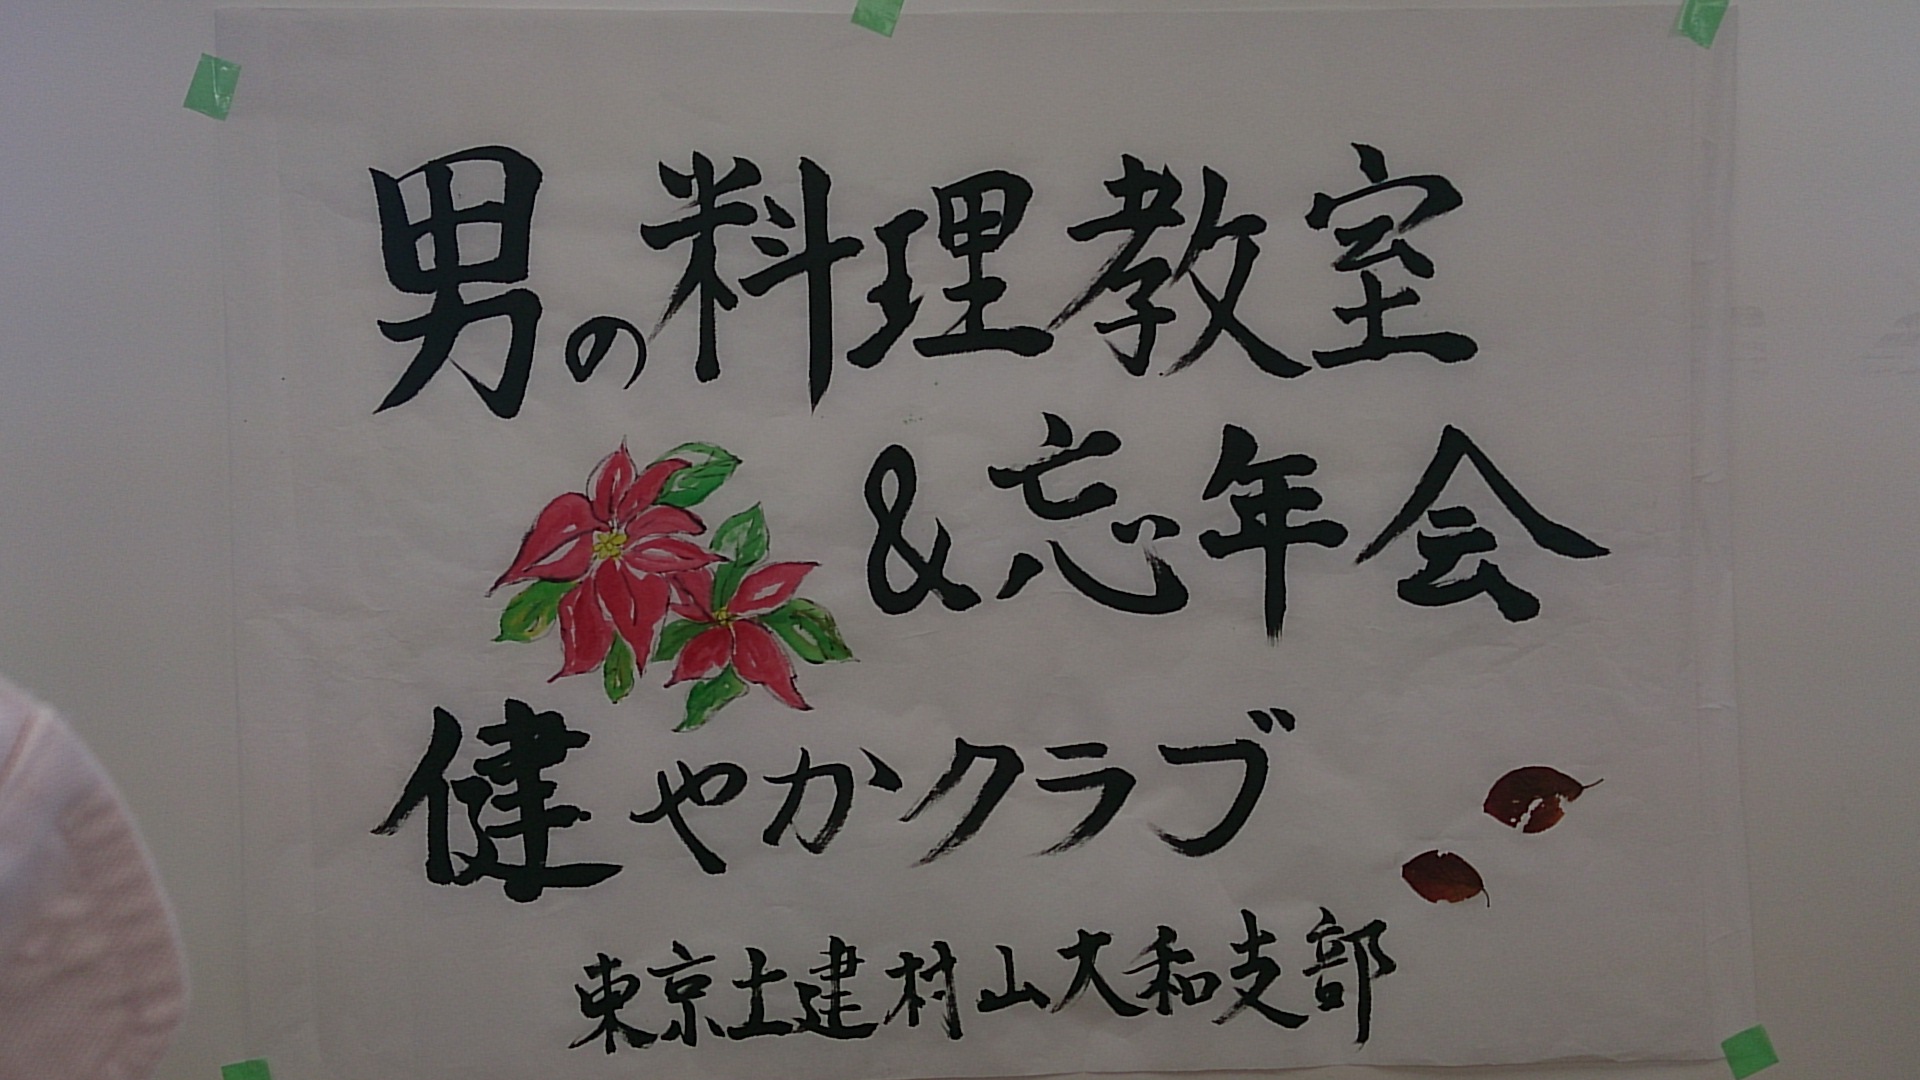 男の料理教室
&忘年会
健やかクラブ
東京土建村山大和支部